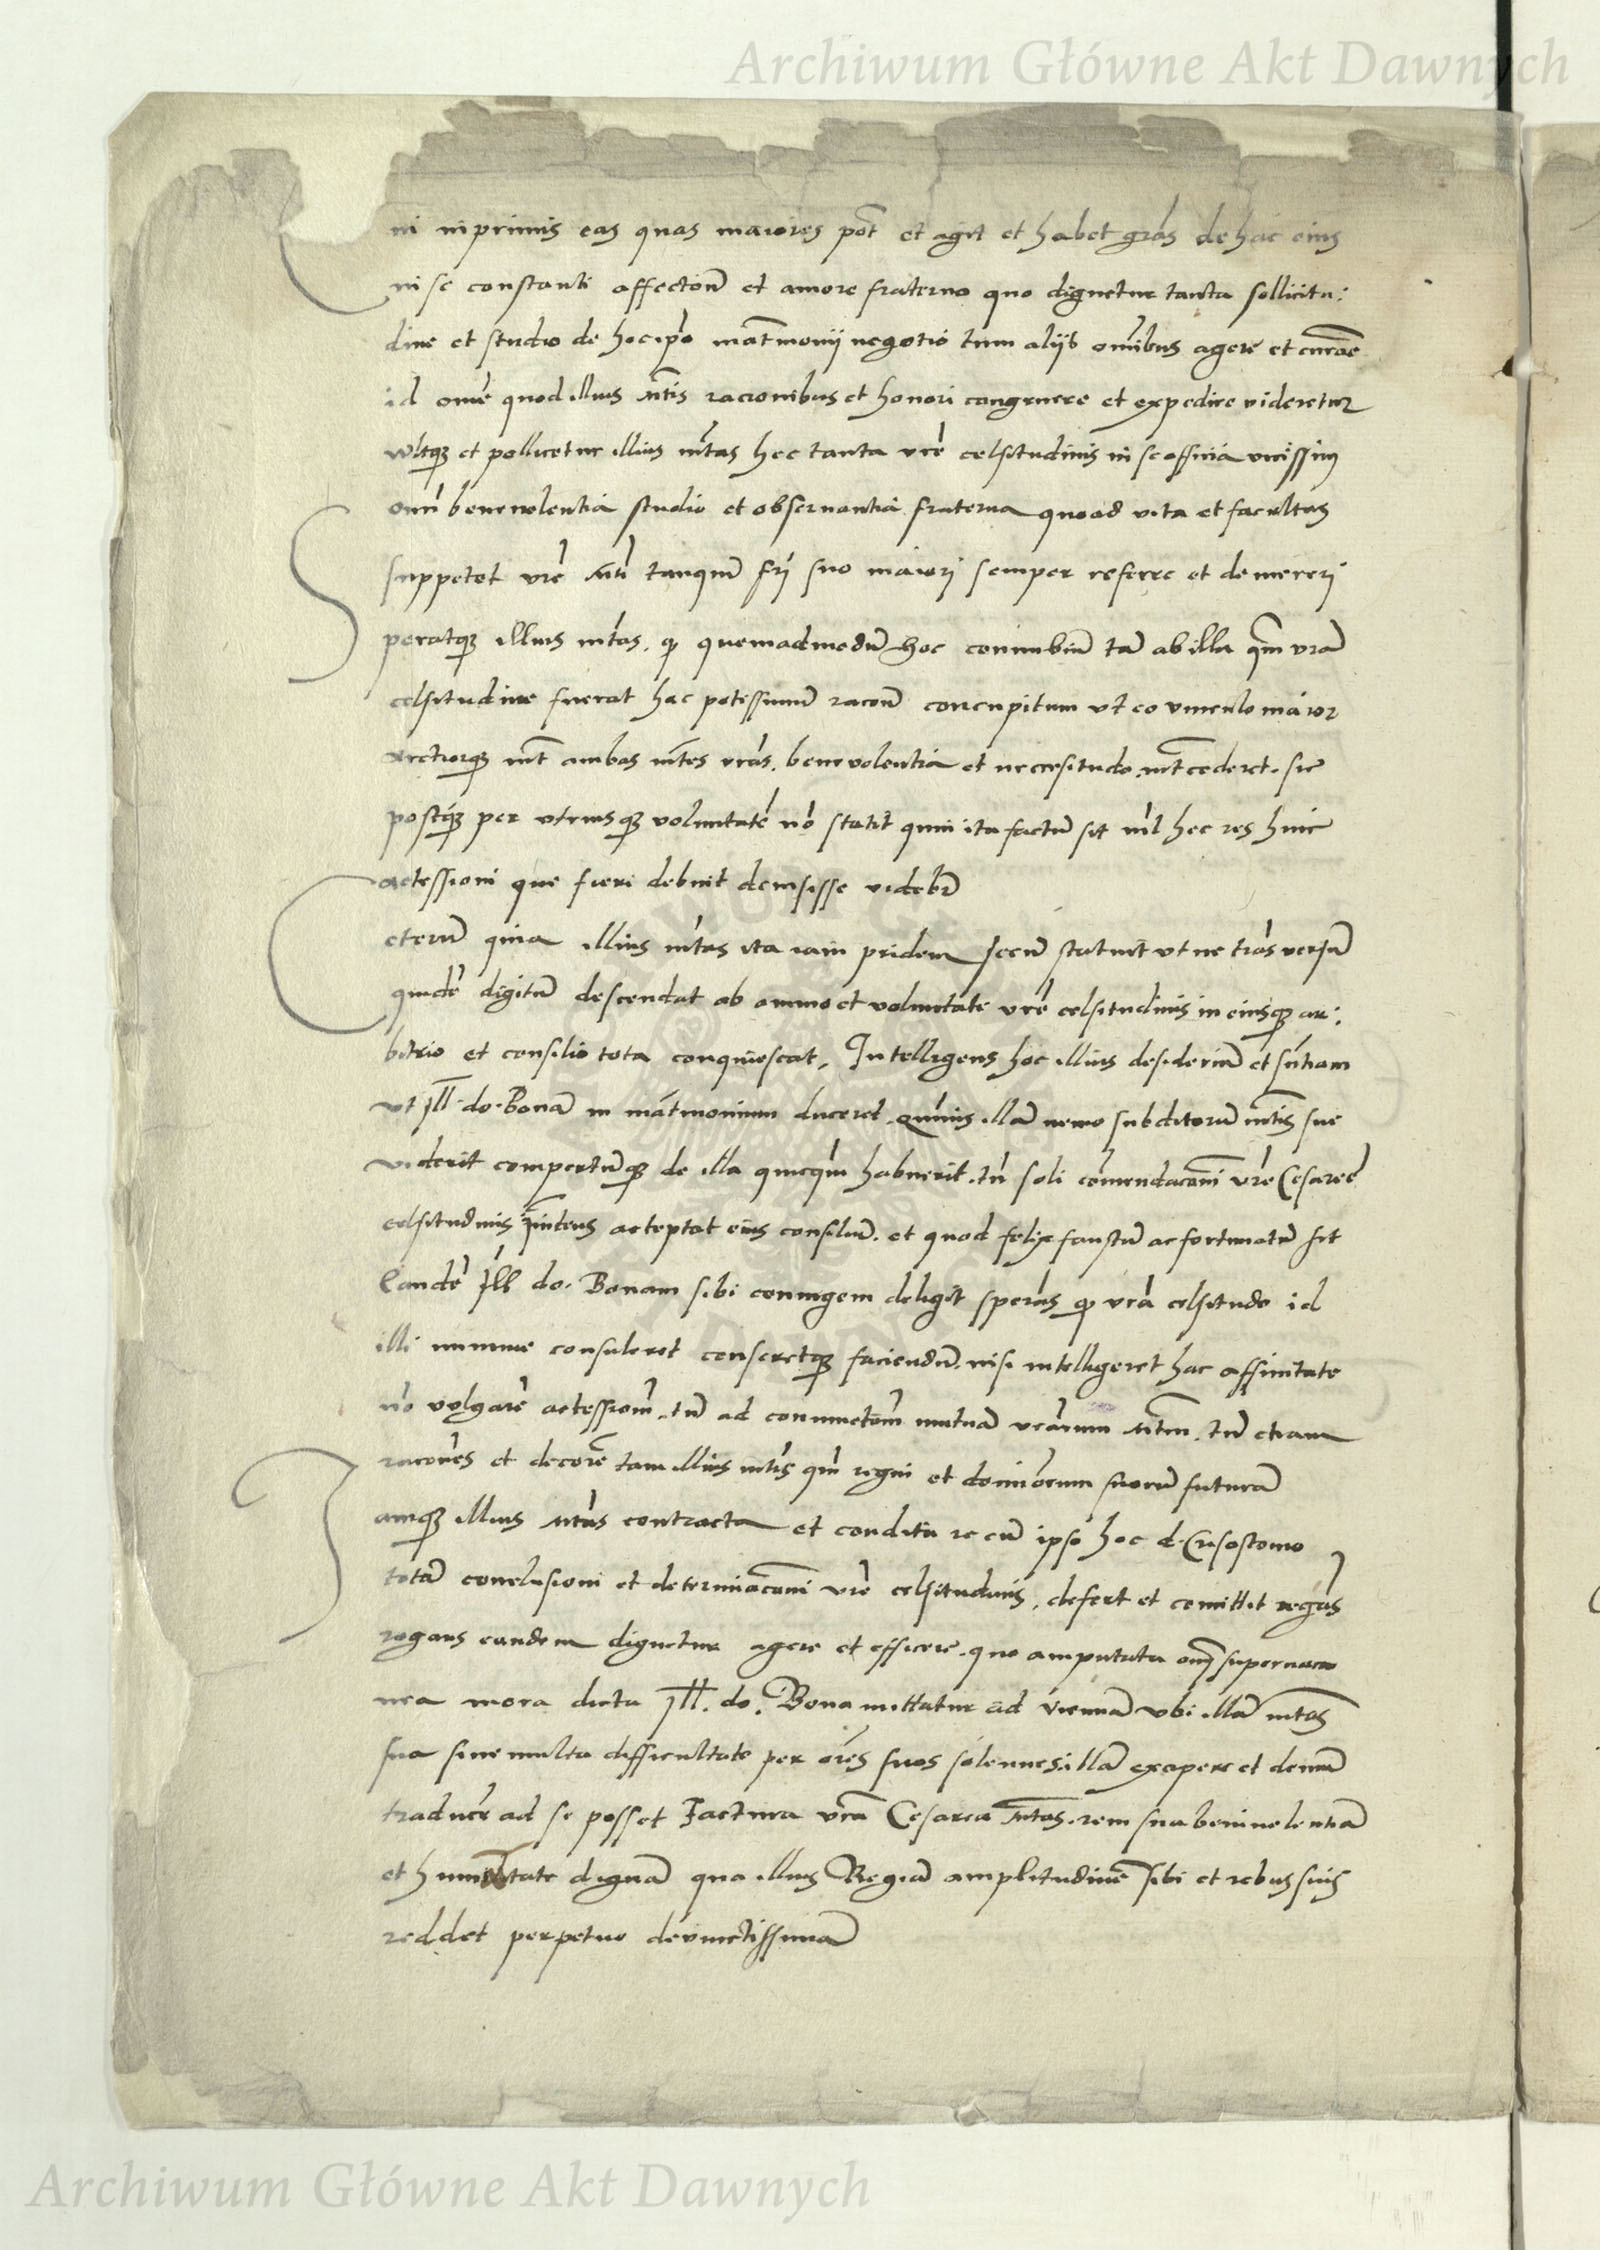 Archiwum Główne Akt Dawnych
ni inprimis eas quas maiores pot et agit et habet gras de hac eius
in se constanti affectoni et amore fraterno quo dignetur tanta sollicitu:
dine et studio de hoc ipo matrmonij negotio tum alijs omibus agere et curare
id ome quod illius mtis racionibus et honori congruere et expedire videretur
vultq3 et pollicetur illius mtas hec tanta vre celsitudinis in se officia vicissim
omi benevolentia studio et observantia fraterna quoad vita et facultas
suppetet vre mti tanqum fri suo maiori semper referre et demereri
Speratq3 illius mtas, q quemadmodu hoc connubiu ta ab illa qm vra
celsitudine fuerat hac potissimum racone concupitum ut eo vinculo maior
arctiorq3 int ambas mtes vras, benevolentia et necessitudo intcederet. sic
postq3 per utriusq3 voluntate no stetit quin ita factu sit nil hec res huic
accessioni que fieri debuit demsisse videbr
Ceteru quia illius mtas ita iam pridem secu statuit ut ne trasversu
quide digitu descendat ab animo et voluntate vre celsitudinis in eiusq3 ar:
bitrio et consilio tota conquiescat. Intelligens hoc illius desideriu et sntiam
ut Ill. do. Bona in matrmonium duceret, qumis illa nemo subditoru mtis sue
viderit compertuq3 de illa quicqm habuerit. tn soli comendaconi vre Cesaree
celsitudinis innitens acceptat eius consiliu. et quod felix faustu ac fortunatu sit
Eande Ill do. Bonam sibi coniugem deligit speras q vra celsitudo id
illi minime consuleret censeretq3 faciendu, nisi intelligeret hac affinitate
no vulgare accessiom, tu ad coniunctom mutua vrarum mtm, tu etiam
racones et decore tam illius mtis qm regni et dominiorum suoru futura
Iamq3 illius mtas contracta et condita re cu ipso hoc d. Crisostomo
tota conclusioni et determiaconi vre celsitudinis, defert et comittit regas
rogans eandem dignetur agere et efficere. quo amputata omi supervaca
nea mora dicta Ill. do. Bona mittatur ad Vienna ubi illa mtas
sua sine multa difficultate per ores suos solennes illa excipere et demu
traducere ad se posset Factura vra Cesarea mtas. rem sua benivolentia
et humaitate digna qua illius Regia amplitudine sibi et rebus suis
reddet perpetuo devinctissima
Archiwum Główne Akt Dawnych